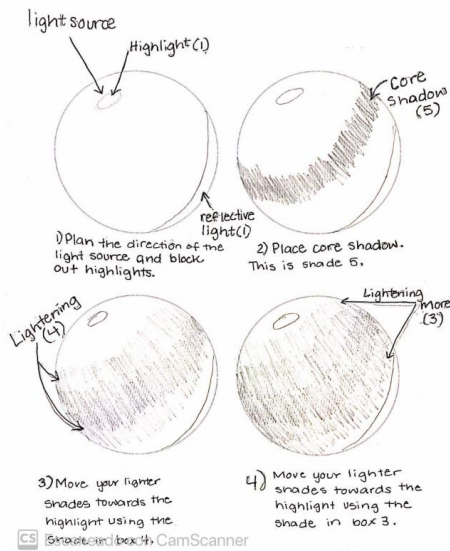 light source
Highlight(1)
Core
Shadow
(5)
reflective
light(1)
1) Plan the direction of the
light source and block
out highlights.
2) Place core shadow.
This is shade 5.
Lightening
(4)
Lightening
more
(3)
3) Move your lighter
shades towards the
highlight using the
shade in box 4.
4) Move your lighter
shades towards the
highlight using the
shade in box 3.
CS CamScanner